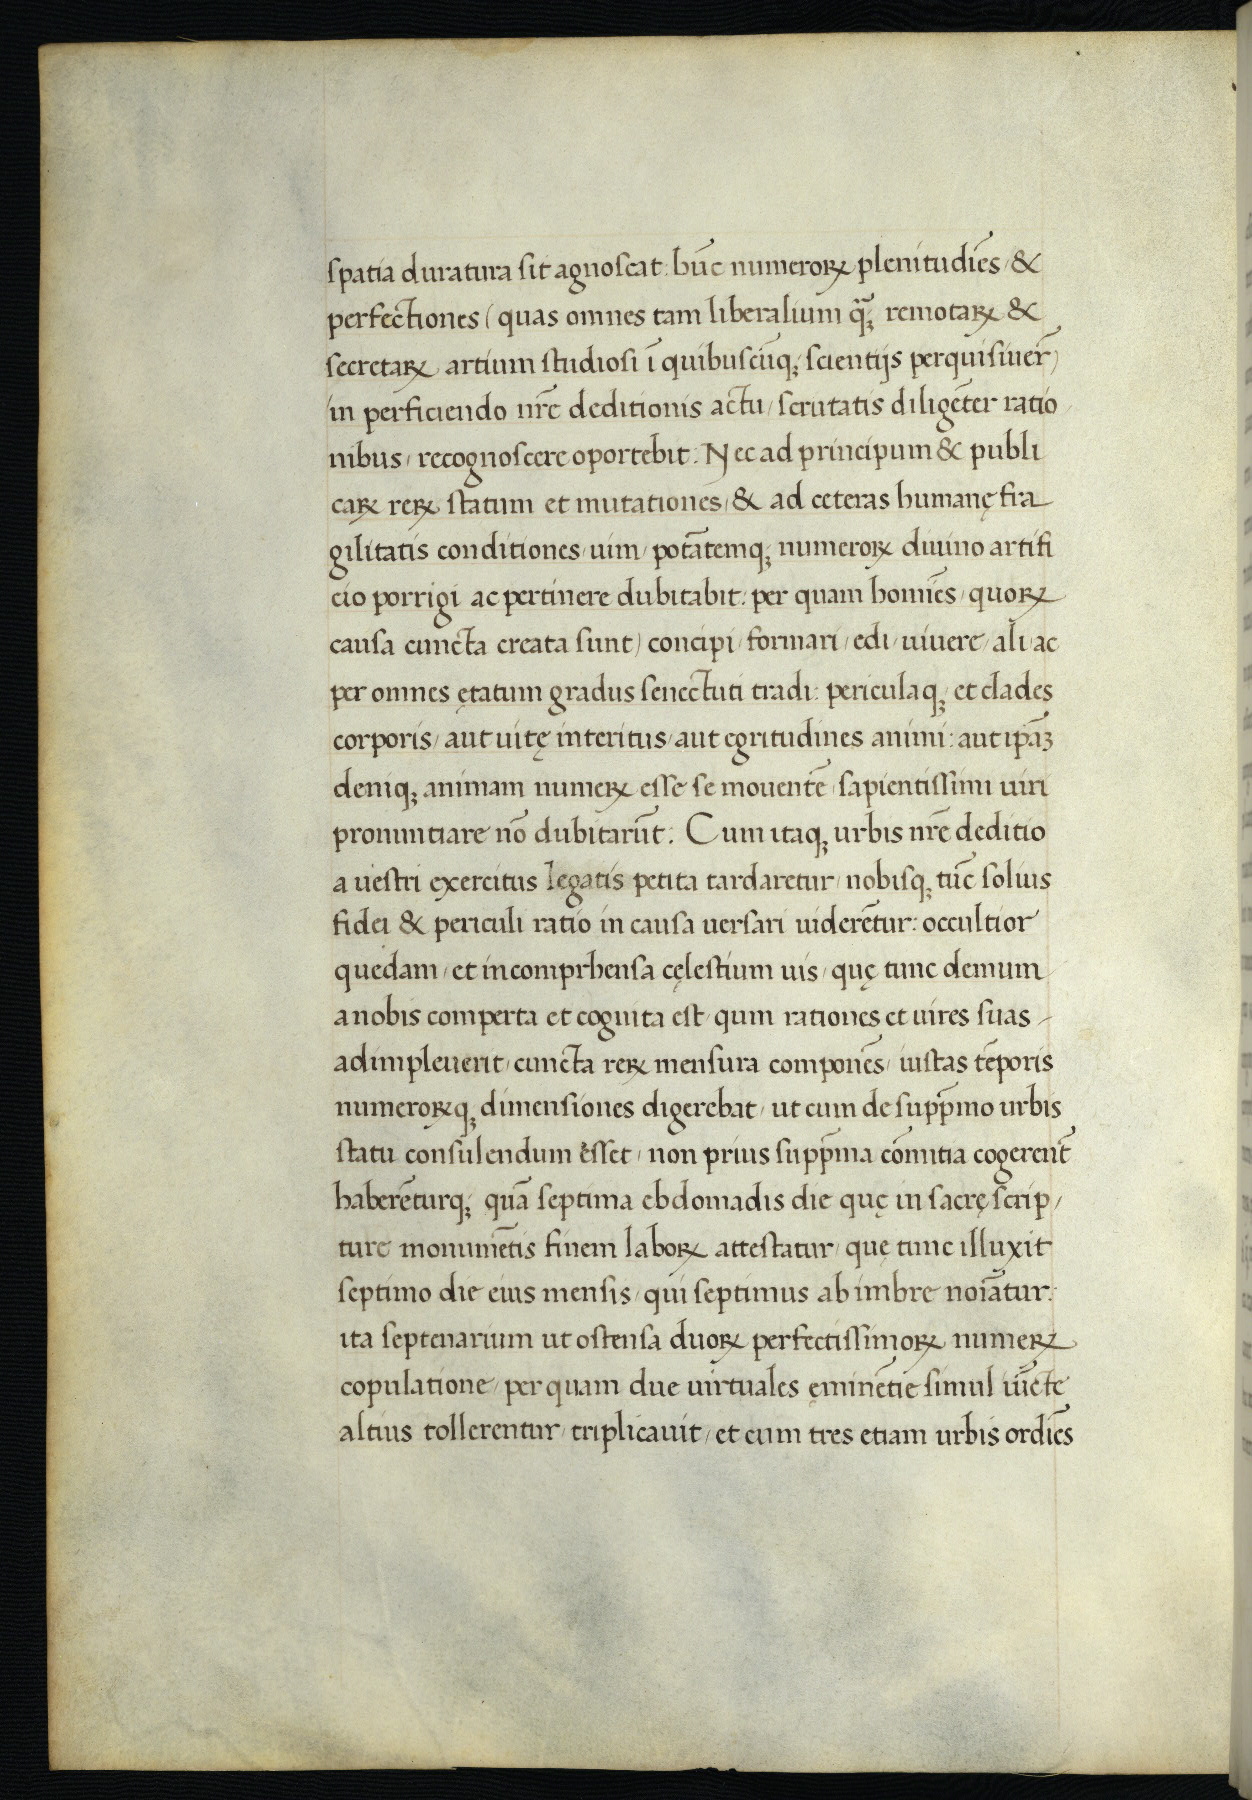 spatia duratura sit agnoscat: hūc numeroꝝ plenitudīes / &
perfectiones ( quas omnes tam liberalium qꝫ̃ remotaꝝ &
secretaꝝ artium studiosi ī quibuscūqꝫ / scientijs perquisiuer̄ )
in perficiendo nr̄e deditionis actu / scrutatis diligēter ratio
nibus / recognoscere oportebit. Nec ad principum & publi
caꝝ reꝝ statum et mutationes / & ad ceteras humanę fra
gilitatis conditiones / uim / potātemqꝫ numeroꝝ diuino artifi
cio porrigi ac pertinere dubitabit: per quam homīes / quoꝝ
causa cuncta creata sunt ) concipi / formari / edi / uiuere / ali / ac
per omnes ętatum gradus senectuti tradi: periculaqꝫ / et clades
corporis / aut uitę interitus / aut egritudines animi: aut ip̄aꝫ
deniqꝫ animam numeꝝ esse se mouentē / sapientissimi uiri
pronuntiare nō dubitarūt. Cum itaqꝫ urbis nr̄e deditio
a uestri exercitus legatis petita tardaretur / nobisqꝫ tūc solius
fidei & periculi ratio in causa uersari uiderētur: occultior
quedam / et incomprhensa cęlestium uis / quę tunc demum
a nobis comperta et cognita est / qum rationes et uires suas -
adimpleuerit / cuncta reꝝ mensura componēs / iustas tēporis
numeroꝝqꝫ dimensiones digerebat / ut cum de supp̄mo urbis
statu consulendum esset / non prius supp̄ma cōmitia cogerent̄
haberēturqꝫ / quā septima ebdomadis die quę in sacrę scrip /
ture monumētis finem laboꝝ attestatur / quę tunc illuxit
septimo die eius mensis / qui septimus ab imbre noīatur:
ita septenarium ut ostensa duoꝝ perfectissimoꝝ numeꝝ
copulatione / per quam due uirtuales ęminētie simul iūcte
altius tollerentur / triplicauit / et cum tres etiam urbis ordīes